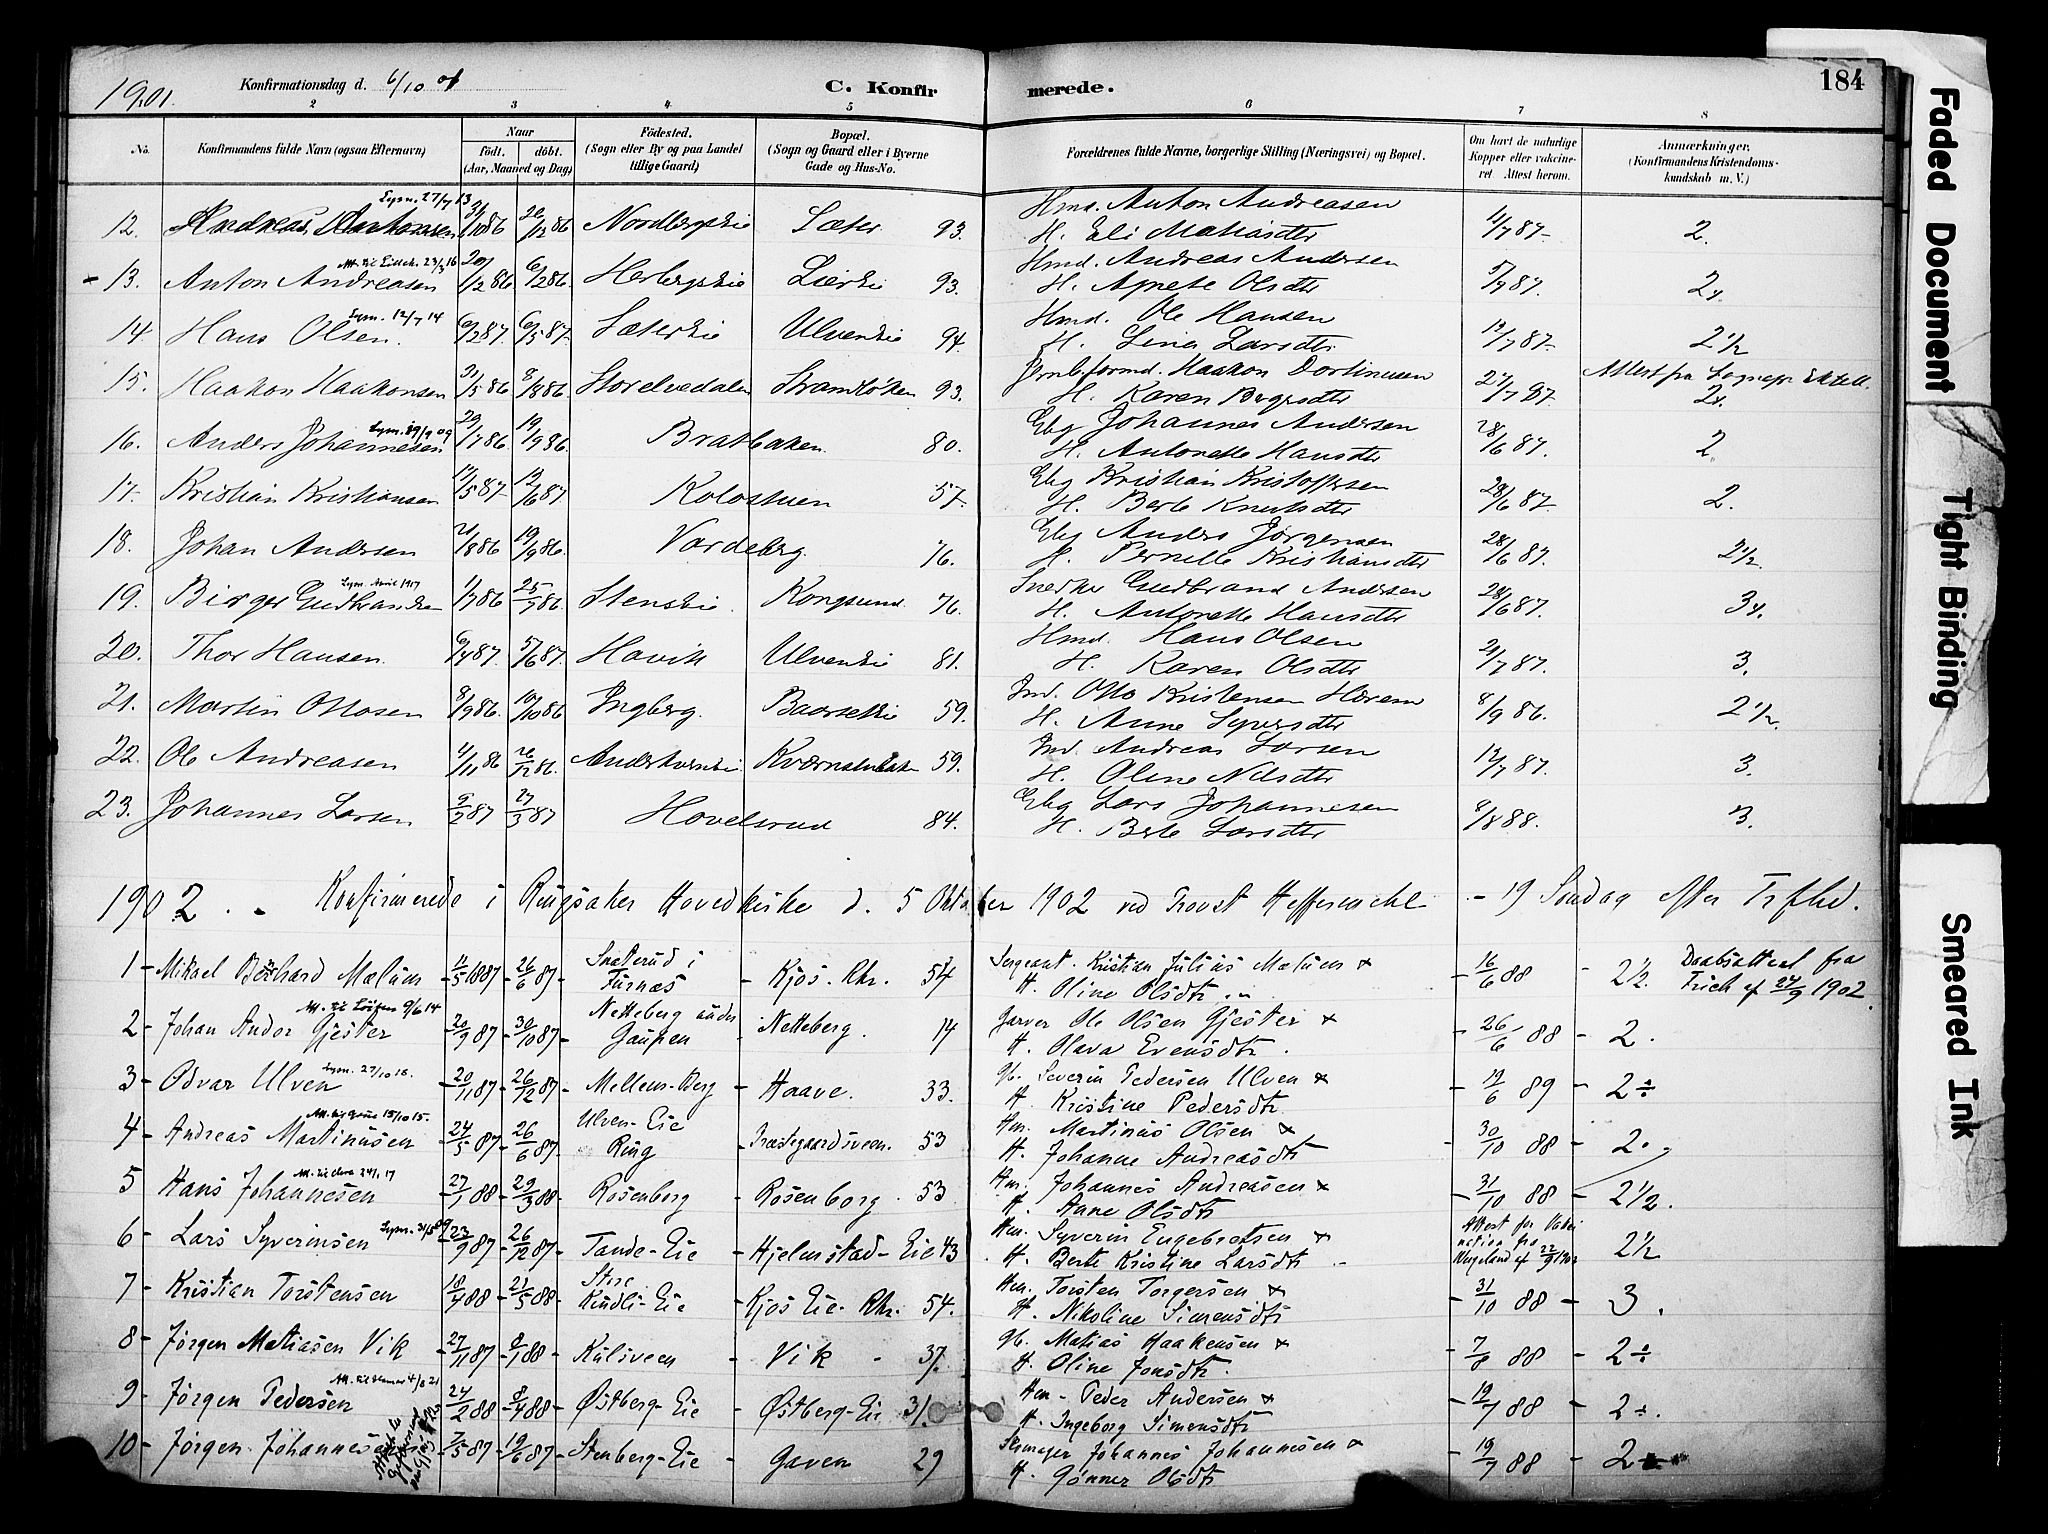 1901.
Konfirmationsdag d. 6/10 01
C. Konfirmerede.
184
2 3 4 5 6 7 8
No.
Konfirmandens fulde Navn (ogsaa Efternavn)
Naar
födt. döbt.
(Aar, Maaned og Dag)
Födested.
(Sogn eller By og paa Landet tillige Gaard)
Bopæl.
(Sogn og Gaard eller i Byerne Gade og Hus-No.
Forældrenes fulde Navne, borgerlige Stilling (Næringsvei) og Bopæl.
Om havt de naturlige Kopper eller vakcineret. Attest herom.
Anmærkninger.
(Konfirmandens Kristendomskundskab m. V.)
Lysn. 27/7 13
12. Andreas Antonsen 20/12 86 Nordbergseie Sæter 93. Hmd. Anton Andreasen 4/7 87 2.
H. Eli Matiasdtr
Att. til 23/3 16
13. Anton Andreasen 20/2 86 Herbergseie 93. Hmd. Andreas Andersen 5/7 87. 2
H. Agnete Olsdtr
Lysn. 12/7 14
14. Hans Olsen. 6/2 87 6/3 87 Sætereie Ulveneie 94. Hmd. Ole Hansen 19/7 87 2 1/2
H. Lina Larsdtr
15. Haakon Haakonsen 31/5 86 8/8 86 Storelvedalen Strandløkken 93. Haakon H. Karen 27/7 87 Attest fra
Lysn. 09
16. Anders Johannesen 20/7 86 19/9 86 Bratbaken 80. Gbg Johannes Andersen 28/6 87. 2
H. Antonette Hansdtr
17. Kristian Kristiansen 14/5 87 19/6 87 Kolostuen 57. Gbg Kristian Kristoffersen 28/6 87 2.
H. Berte Knutsdtr
18. Johan Andersen 21/8 86 19/9 86. Vardeberg. 76. Gbg Anders Jørgensen 28/6 87. 2 1/2.
H. Pernelle Kristiansdtr
Lysn. April 1917
19. Birger Gudbrandsen 1/7 86 25/7 86. Stenseie. Kongsund. 76. Snedker Gudbrand Andersen 28/6 87. 3
H. Antonette Hansdtr
20. Thor Hansen. 6/4 87. 5/6 87. Havik Ulveneie 81. Hmd. Hans Olsen 21/7 87. 3.
H. Karen Olsdtr
21. Martin Ottosen 8/9 86. 10/10 86 Ingberg. Baarseteie 59. Ind. Otto Kristensen 8/9 86. 2 1/2.
H. Anne Syversdtr
22. Ole Andreasen 4/11 86 26/12 86. 59. Ind. Andreas Larsen 12/7 87. 3.
H. Oline Nilsdtr
23. Johannes Larsen 9/2 87 27/3 87 Hovelsrud 84. Gbg Lars Johannesen 9/8 88. 3.
H. Berte Larsdtr
1902. - Konfirmerede i Ringsaker Hovedkirke d. 5 Oktober 1902 ved Provst Heffermehl - 19 Søndag efter Trfhd.
1 - Mikael Bernhard Mælum 11/5 1887 - 26/6 87 - Snaterud i Furnæs - Kjos. Rkr. 54 Sergeant. Kristian Julius Mælum - 16/6 88 - 2 1/2. Daabsattest fra
H. Oline Olsdtr. Trich af 24/9 1902.
Att. til Löiten 9/6 14
2 - Johan Andor Gjester - 20/9 87 - 30/10 87 - Netteberg under Gaupen - Netteberg. 14 Garver Ole Olsen Gjester - 26/6 88 - 2.
H. Olava Evensdtr.
Lysn. 27/10 16.
3 - Odvar Ulven - 20/11 87 - 26/12 87 - Mellem-Berg - Haave. 33. Gb. Severin Pedersen Ulven - 19/6 89 - 2 ÷
H. Kristine Pedersdtr.
15/10 15.
4 - Andreas Martinusen - 24/5 87 - 26/6 87 - Ulven-Eie Ring - Præstegaardsveen. 53 Hm. Martinus Olsen - 30/10 88 - 2.
H. Johanne Andreasdtr
24/1 17
5 Hans Johannesen - 27/1 88 - 29/3 88 - Rosenborg - Rosenborg. 53 Hm. Johannes Andreasen - 31/10 88 - 2 1/2.
H. Aane Olsdtr
Lysn. 31/5 09
6 - Lars Syverinsen - 23/9 87 - 26/12 87 - Tande-Eie - Hjelmstad-Eie 43 Hm. Syverin Engebretsen Attest for Vaksination fra Wergeland af 22/9 1902 2 1/2
H. Berte Kristine Larsdtr -
7 - Kristian Torstensen 18/4 88 - 21/5 88 - Store Kindli-Eie - Kjos Eie. Rkr. 54. Hm. Torsten Torgersen - 31/10 88 - 3.
H. Nikoline Simensdtr
8 - Jørgen Matiasen Vik - 27/11 87 - 8/1 88 - Kulsveen - Vik - 37. Gb. Matias Haakensen - 7/8 88 - 2 ÷
H. Oline Jonsdtr.
Att. til Hamar 4/8 21
9 - Jørgen Pedersen - 24/2 88 - 8/4 88 - Østberg-Eie - Østberg-Eie 31. Hm - Peder Andersen - 19/7 88 - 2 ÷.
H. Ingeborg Simensdtr
10 - Jørgen Johannesen - 7/5 87 - 19/6 87 - Stenberg-Eie - Gaven 29 Johannes Johannesen - 19/7 88 - 2
H. Gønner Olsdtr
Faded Document
Tight Binding
Smeared Ink